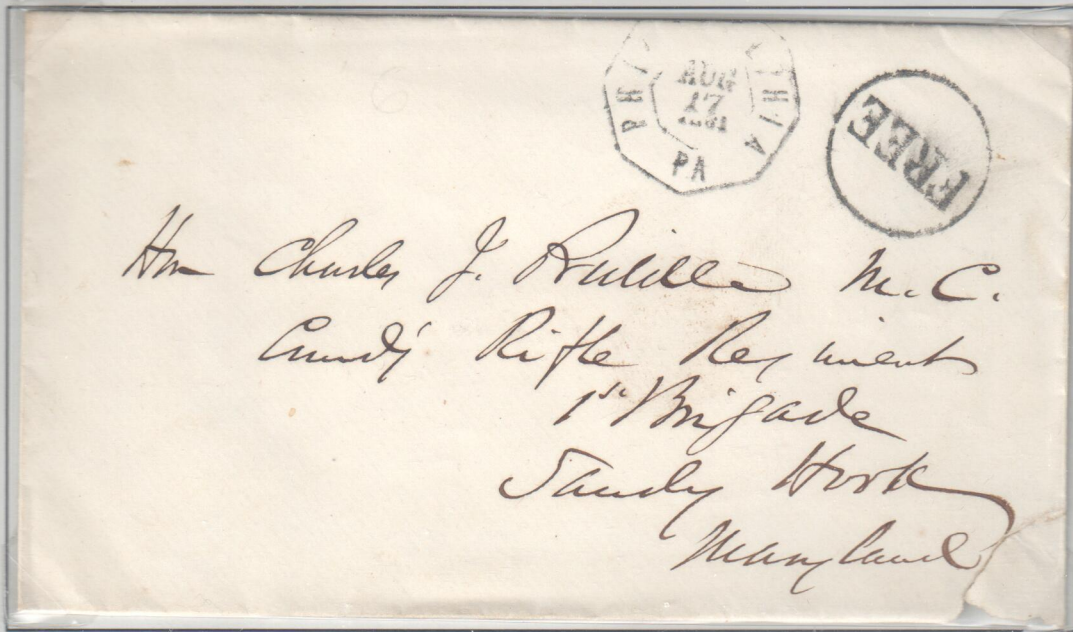 PHI LPHIA
AUG
17
1861
PA
FREE
Hon Charles J. Biddle M.C.
Comdg Rifle Regiment
1st Brigade
Sandy Hook
Maryland